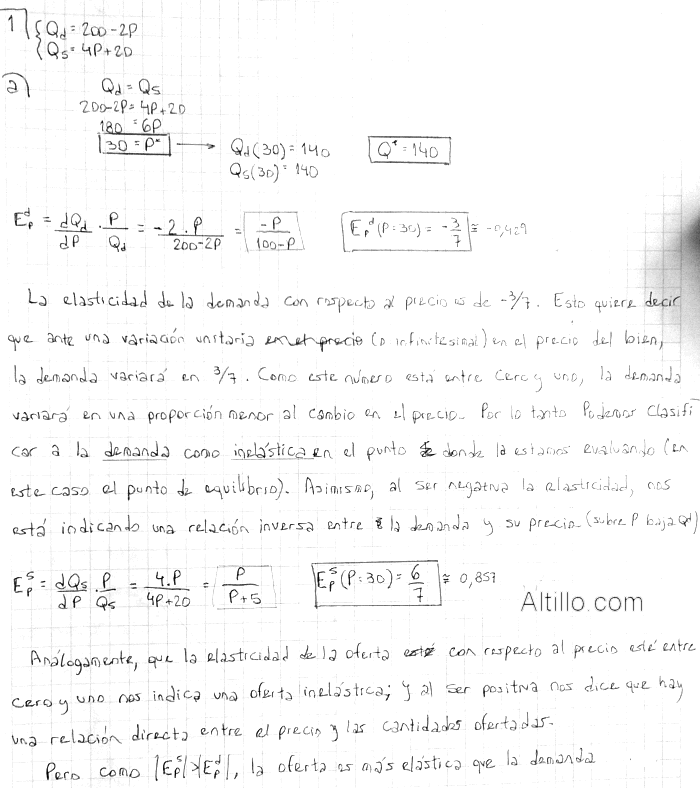 1) { Qd = 200 - 2P
{ Qs = 4P + 20
a) Qd = Qs
200 - 2P = 4P + 20
180 = 6P
30 = P* → Qd (30) = 140 Q* = 140
Qs (30) = 140
E_P^d = dQd/dP · P/Qd = -2 . P / 200 - 2P = -P / 100 - P E_P^d (P=30) = -3/7 ≅ -0,429
La elasticidad de la demanda con respecto al precio es de -3/7. Esto quiere decir
que ante una variación unitaria en el precio (o infinitesimal) en el precio del bien,
la demanda variará en 3/7. Como este número está entre cero y uno, la demanda
variará en una proporción menor al cambio en el precio. Por lo tanto Podemos clasifi
car a la demanda como inelástica en el punto donde la estamos evaluando (en
este caso el punto de equilibrio). Asimismo, al ser negativa la elasticidad, nos
está indicando una relación inversa entre la demanda y su precio (sube P baja Qd)
E_P^s = dQs/dP · P/Qs = 4.P / 4P+20 = P / P+5 E_P^s (P=30) = 6/7 ≅ 0,857
Altillo.com
Análogamente, que la elasticidad de la oferta esté con respecto al precio esté entre
cero y uno nos indica una oferta inelástica; y al ser positiva nos dice que hay
una relación directa entre el precio y las cantidades ofertadas.
Pero como |E_P^s|>|E_P^d|, la oferta es más elástica que la demanda